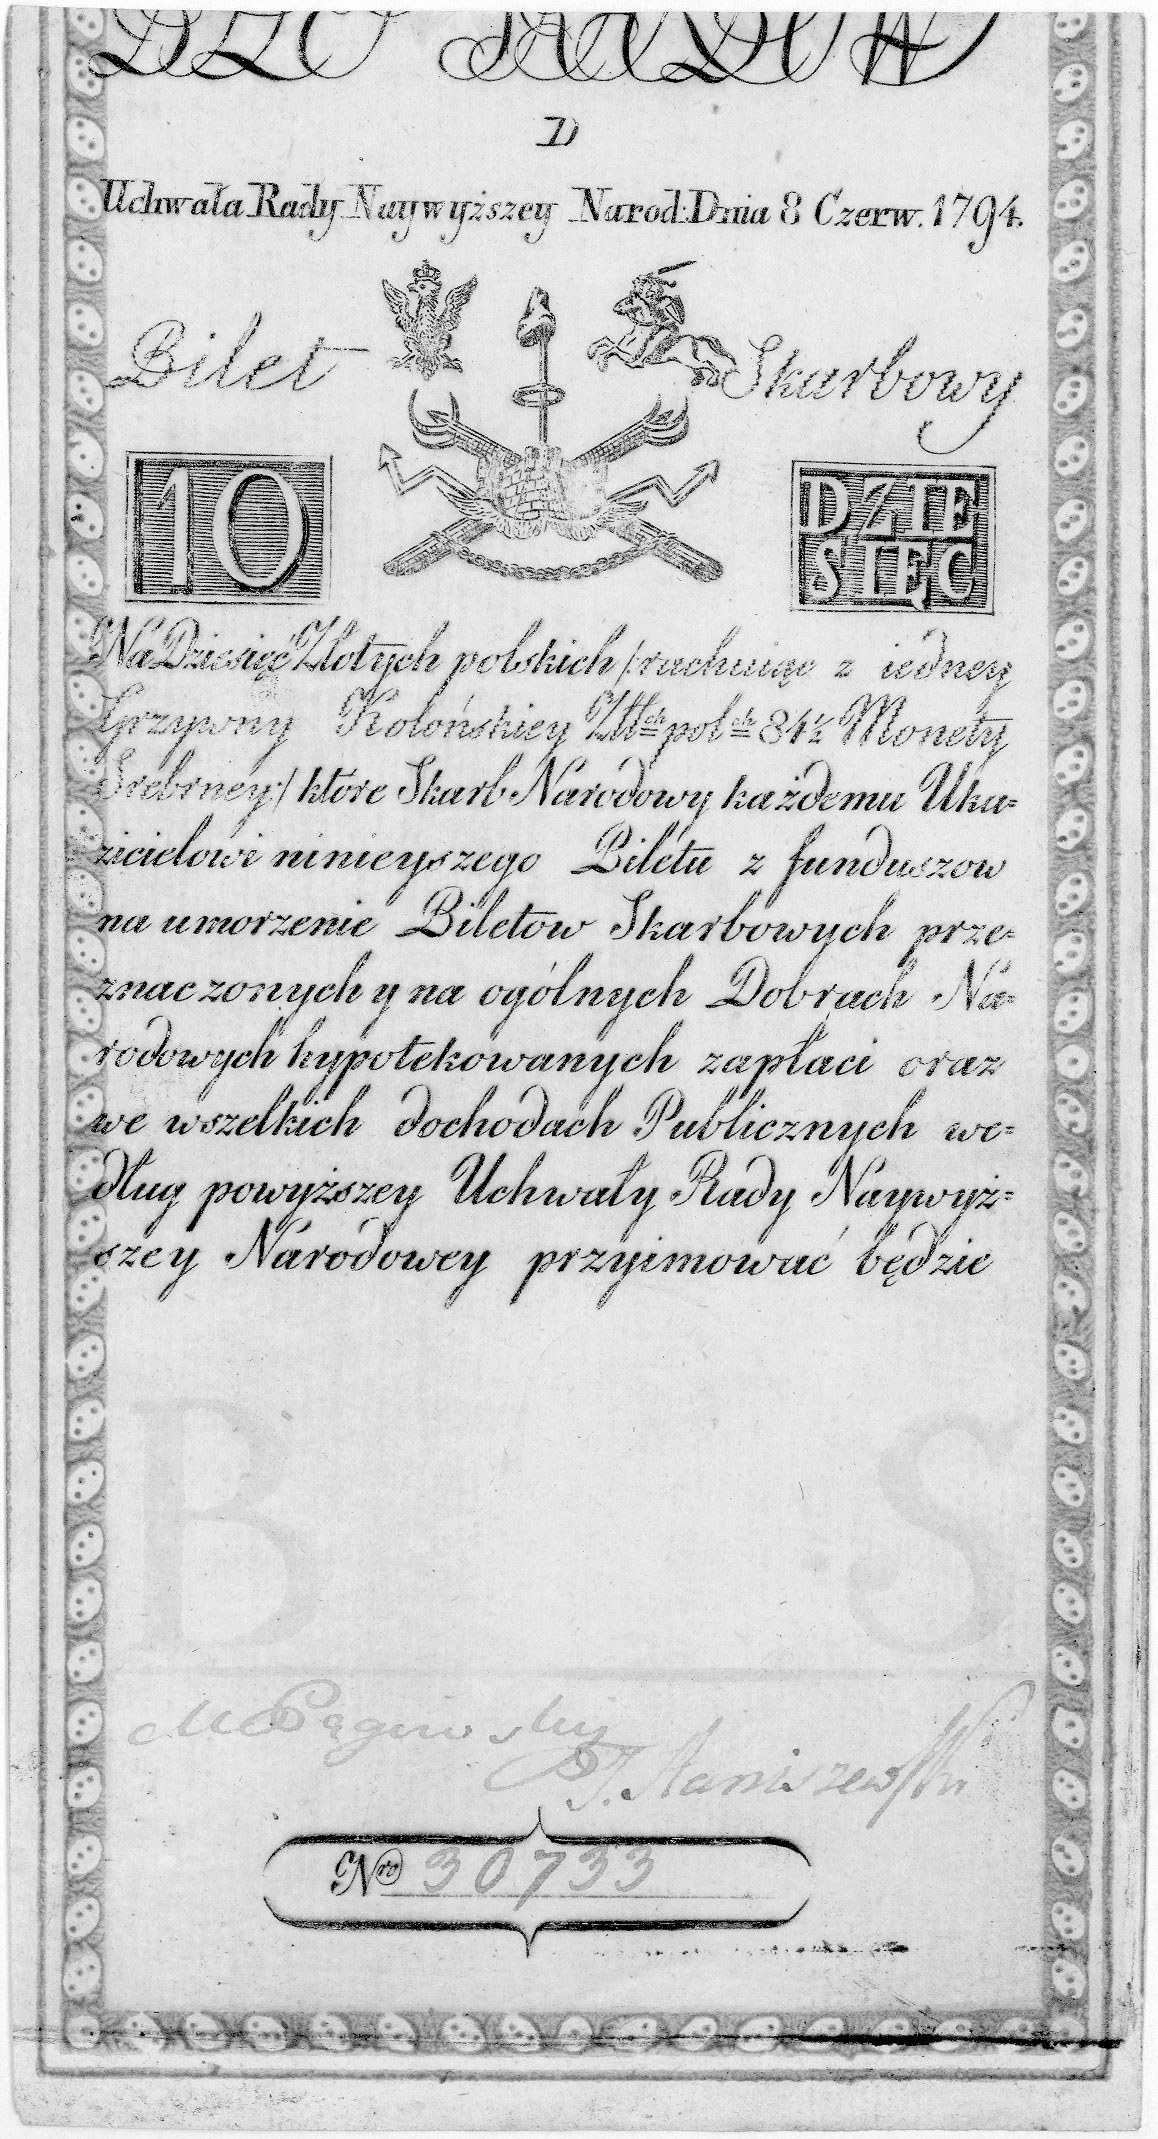 D
Uchwała Rady Naywyższey Narod: Dnia 8 Czerw. 1794.
Bilet Skarbowy
10 DZIE
SIĘĆ
Na Dziesięć Złotych polskich /:rachuiąc z iedney
Grzywny Kolońskiey Złł^ch pol^ch 84½ Monety
Srebrney:/ które Skarb Narodowy każdemu Uka=
zicielowi ninieyszego Biletu z funduszow
na umorzenie Biletow Skarbowych prze=
znaczonych y na ogólnych Dobrach Na=
rodowych hypotekowanych zapłaci oraz
we wszelkich dochodach Publicznych we=
dług powyższey Uchwały Rady Naywyż=
szey Narodowey przyimować będzie
B S
M Pągowski
J. Staniszewski
N^ro 30733